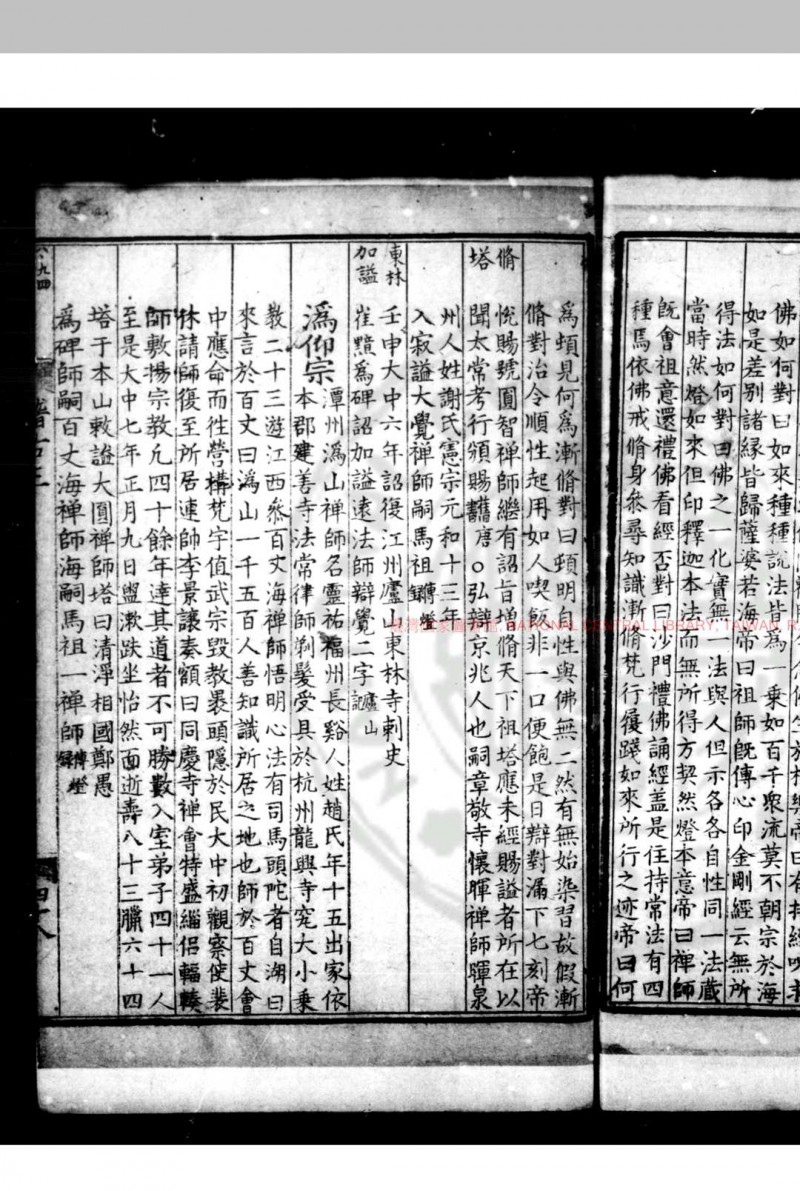 佛如何對曰如來種種說法皆爲一乘如百千眾流莫不朝宗於海
如是差別諸縁皆歸薩婆若海帝曰祖師旣傳心印金剛經云無所
得法如何對曰佛之一化實無一法與人但示各各自性同一法藏
當時然燈如來但印釋迦本法而無所得方契然燈本意帝曰禪師
旣會祖意還禮佛看經否對曰沙門禮佛誦經盖是住持常法有四
種焉依佛戒脩身叅尋知識漸脩梵行履踐如來所行之迹帝曰何
爲頓見何爲漸脩對曰頓明自性與佛無二然有無始染習故假漸
脩對治令順性起用如人喫飯非一口便飽是日辯對漏下七刻帝
悅賜號圓智禪師繼有詔旨増脩天下祖塔應未經賜謚者所在以
聞太常考行頒賜舊唐○弘辯京兆人也嗣章敬寺懷暉禪師暉泉
州人姓謝氏憲宗元和十三年
入寂謚大覺禪師嗣馬祖傳燈
脩
塔
壬申大中六年詔復江州廬山東林寺刺史
崔黯爲碑詔加謚遠法師辯覺二字廬山記
東林
加謚
溈仰宗
潭州溈山禪師名靈祐福州長谿人姓趙氏年十五出家依
本郡建善寺法常律師剃髮受具於杭州龍興寺究大小乘
教二十三遊江西叅百丈海禪師悟明心法有司馬頭陀者自湖
來言於百丈曰溈山一千五百人善知識所居之地也師於百丈會
中應命而徃營構梵宇值武宗毀教裹頭隱於民大中初觀察使裴
休請師復至所居連帥李景讓奏額曰同慶寺禅會特盛緇侶輻輳
師敷揚宗教凡四十餘年達其道者不可勝數入室弟子四十一人
至是大中七年正月九日盥漱趺坐怡然面逝壽八十三臘六十四
塔于本山敕謚大圓禪師塔曰清淨相國鄭愚
爲碑師嗣百丈海禪師海嗣馬祖一禅師傳燈錄
NATIONAL CENTRAL LIBRARY, TAIWAN, R